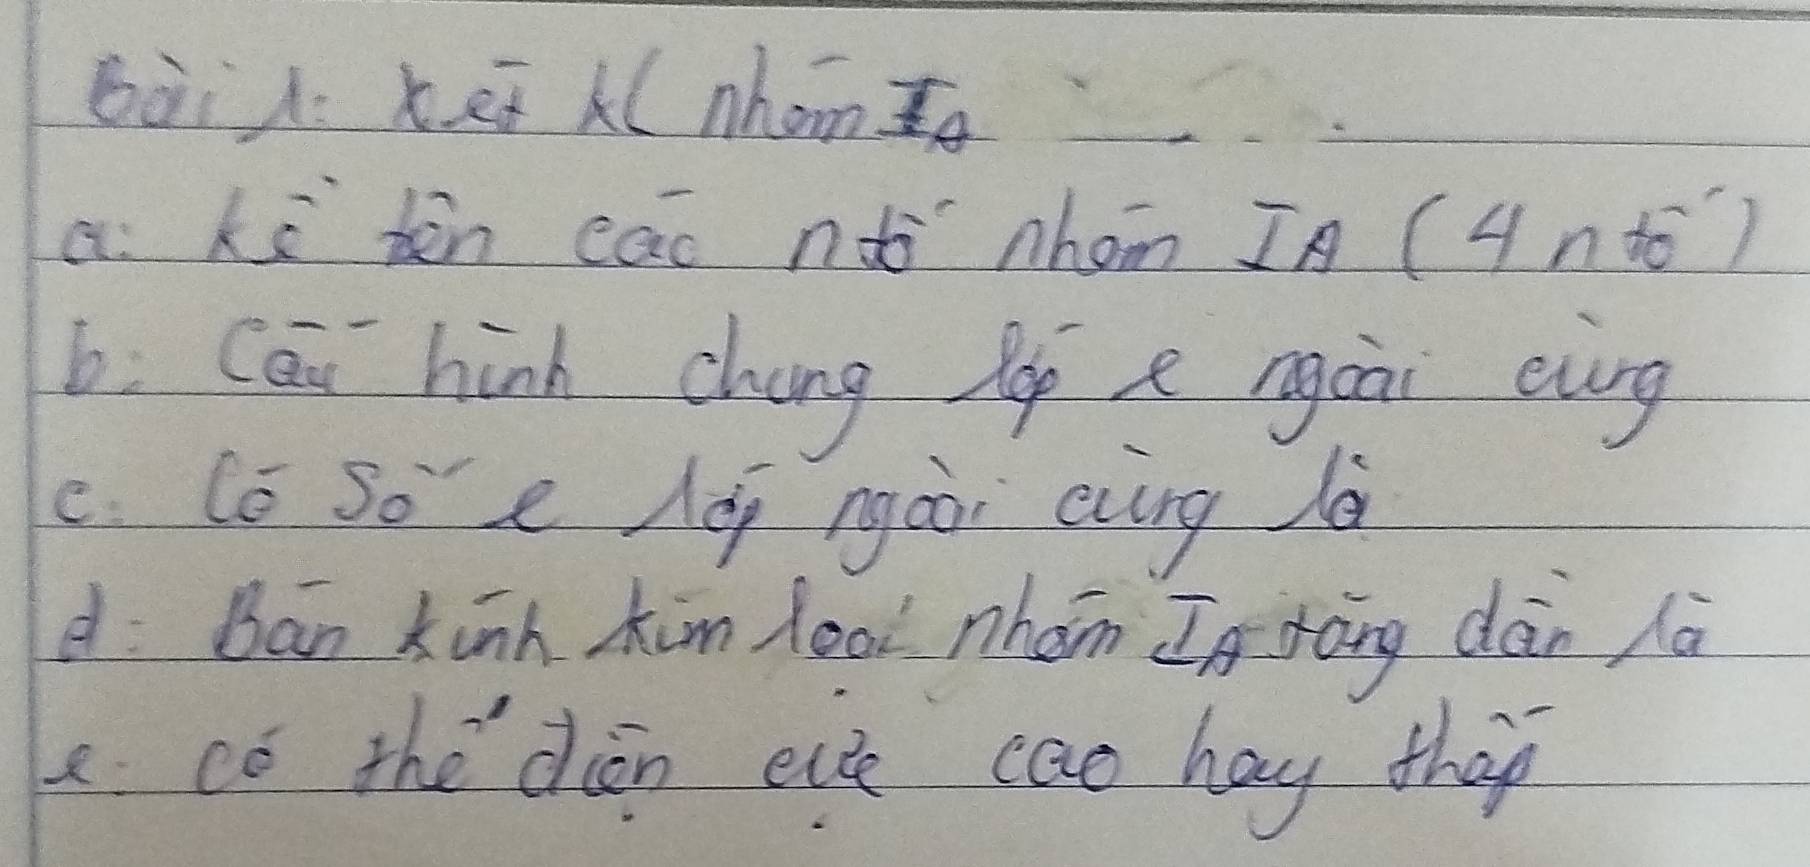 Bài 1: Xét Kl nhóm IA
a: kể tên các ntố nhóm IA (4 ntố)
b: Cấu hình chung lớp e ngoài cùng
c: Có số e lớp ngoài cùng là
d: Bán kính kim loại nhóm IA tăng dần là
e: có thế điện cực cao hay thấp